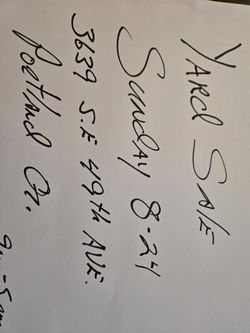 YARD SALE
SUNDAY 8-24
3639 S.E 49th AVE.
Portland Or.